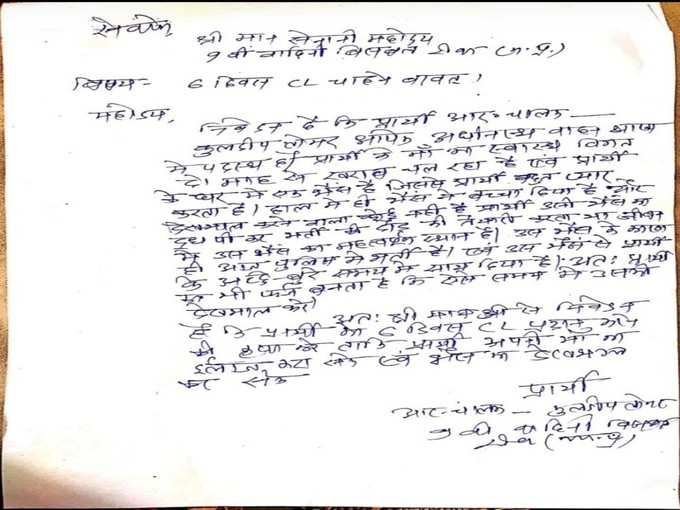 सेवामें
श्री मान सेनानी महोदय
9 वी वाहिनी विसबल रीवा (म.प्र.)
विषय:- 6 दिवस CL चाहने बावत।
महोदय,
निवेदन है कि प्रार्थी आर. चालक
कुलदीप तोमर आपके अधीनस्थ वाहन शाखा
में पदस्थ हूँ प्रार्थी की माँ का स्वास्थ्य विगत
दो माह से खराब चल रहा है एवं प्रार्थी
के घर में एक भैंस है जिससे प्रार्थी बहुत प्यार
करता है। हाल में ही भैंस ने बच्चा दिया है और
देखभाल करने वाला कोई नहीं है प्रार्थी उसी भैंस का
दूध पी कर भर्ती की दौड़ की तैयारी करता था जीवन
में उस भैंस का महत्वपूर्ण स्थान है। उस भैंस के कारण
ही आज पुलिस में भर्ती है। एवं उस भैंस ने प्रार्थी
के अच्छे बुरे समय में साथ दिया है। अतः प्रार्थी
का भी फर्ज बनता है कि ऐसे समय में उसकी
देखभाल करे।
अतः श्री मान जी से निवेदन
है कि प्रार्थी को 6 दिवस CL प्रदान करने
की कृपा करे ताकि प्रार्थी अपनी माँ का
ईलाज करा सके एवं भैंस की देखभाल
कर सके
प्रार्थी
आर. चालक - कुलदीप तोमर
9 वी वाहिनी विसबल
रीवा (म.प्र)